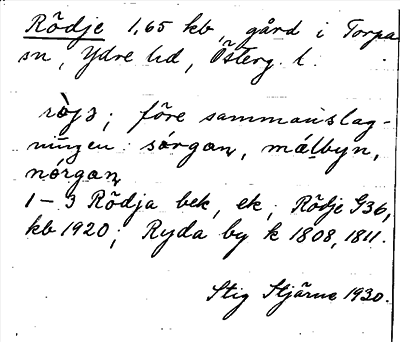 Rödje 1,65 kb, gård i Torpa
sn, Ydre hd, Österg. l.
rö̀jɜ; före sammanslag-
ningen: sórgaɳ, málbyn,
nórgaɳ
1-3 Rödja bek, ek; Rödje G36,
kb 1920; Ryda by k 1808, 1811.
Stig Stjärne 1930.